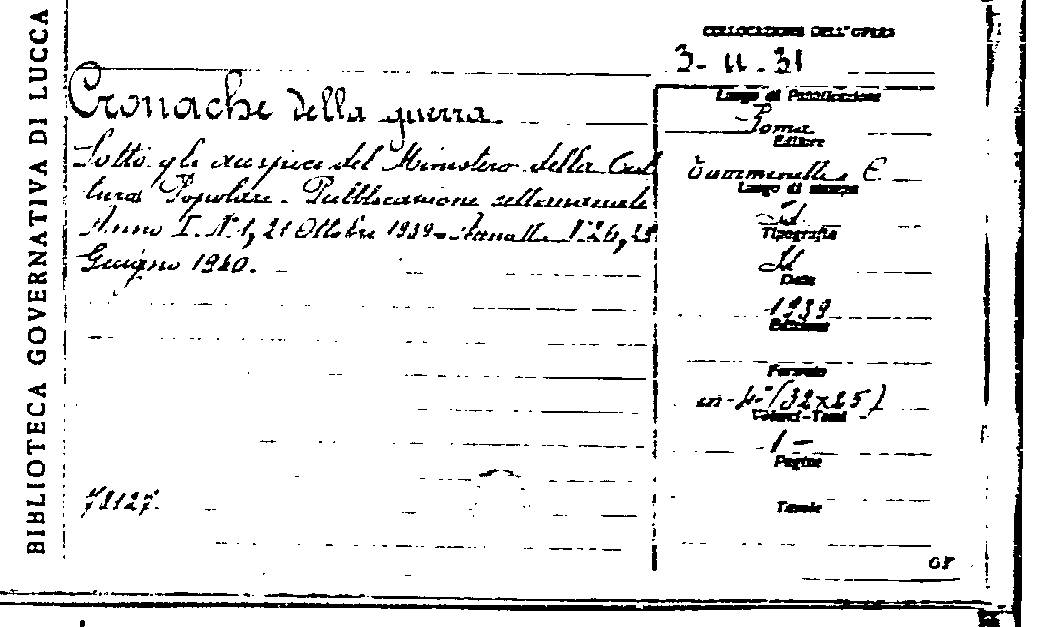 BIBLIOTECA GOVERNATIVA DI LUCCA
COLLOCAZIONE DELL'OPERA
Cronache della guerra.
Sotto gli auspici del Ministero della Cul
tura Popolare. Pubblicazione settimanale
Anno I. N. 1, 21 Ottobre 1939 - N. 26, 
Giugno 1940.
78127.
Luogo di Pubblicazione
Roma
Editore
Tumminelli E
Luogo di stampa
Id
Tipografia
Id
Data
1939
Edizione
Formato
in-4° (32x25)
Volumi-Tomi
1 -
Pagine
Tavole